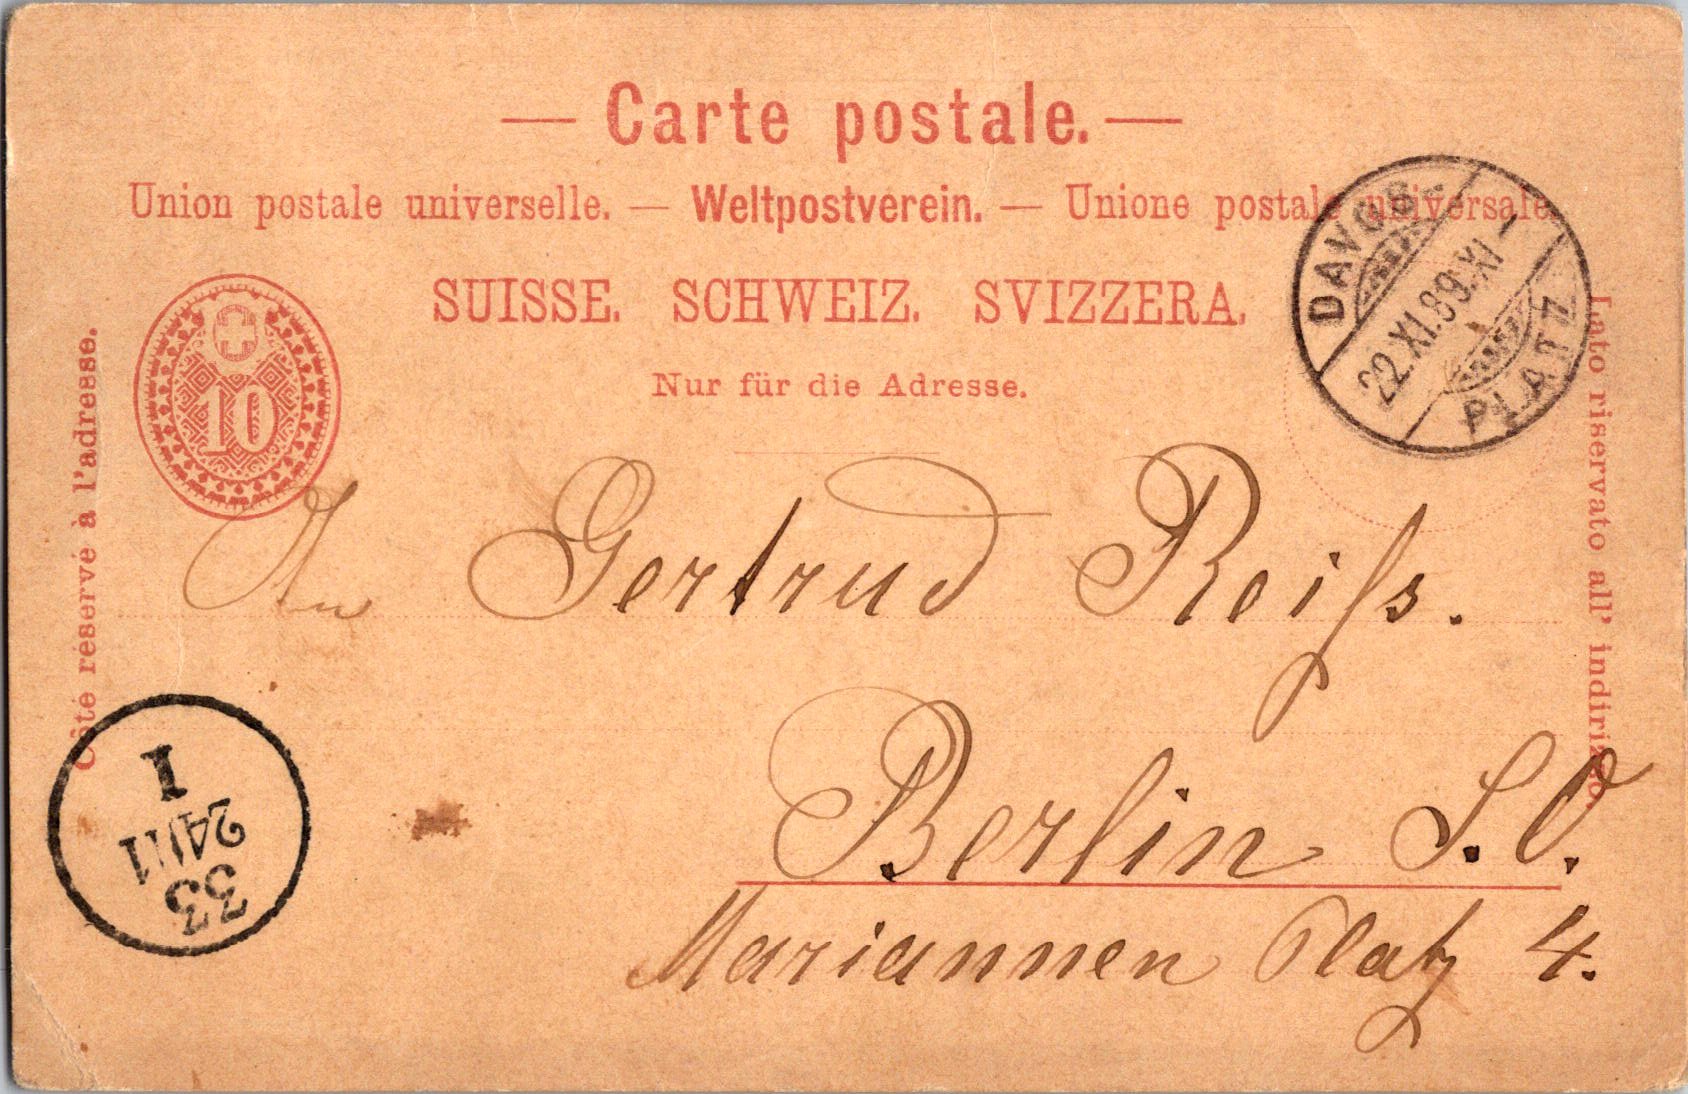 — Carte postale. —
Union postale universelle. — Weltpostverein. — Unione postale universale.
SUISSE. SCHWEIZ. SVIZZERA.
Nur für die Adresse.
10
Côté réservé à l'adresse.
Lato riservato all' indirizzo.
DAVOS-
22.XI.89.XI-
PLATZ
An Gertrud Reiſs.
Berlin S.O.
Mariannen Platz 4.
33
24/11
1